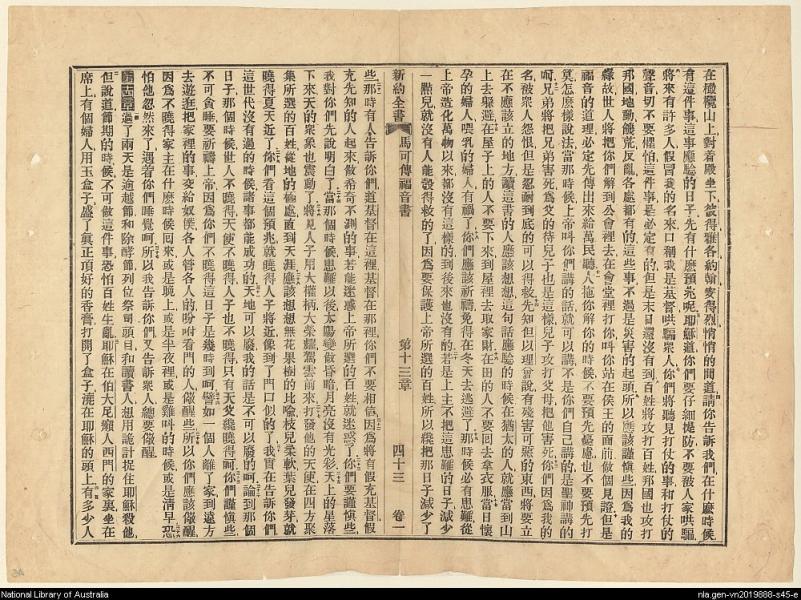 在橄欖山上對着殿坐下彼得雅各約翰安得烈悄悄的問道請你告訴我們在什麼時候
有這件事這事應驗的日子先有什麼預兆呢耶穌道你們要仔細提防不要被人家哄騙
將來有許多人假冒我的名來口稱我是基督哄騙衆人你們將聽見打仗的事和打仗的
聲音切不要懼怕這件事是必定有的但是末日還沒有到百姓將攻打百姓邦國也攻打
邦國地動饑荒反亂各處都有的這些事不過是災害的起頭所以應該謹愼些因爲我的
緣故世人將把你們解到公會裡去在會堂裡打你叫你站在侯王的面前做個見證但是
福音的道理必定先傳出來給萬民聽人拖你解你的時候不要預先憂慮也不要預先打
算怎麼樣說法當那時候上帝叫你們講的話就可以講不是你們自己講的是聖神講的
呵兄弟將把兄弟害死爲父的待兒子也是這樣兒子攻打父母把他害死你們因爲我的
名被衆人怨恨但是忍耐到底的可以得救先知但以理曾說有殘害可惡的東西將要立
在不應該立的地方讀這書的人應該想想這句話應驗的時候在猶太的人就應當到山
上去躱避在屋子上的人不要下來到屋裡去取家財在田的人不要回去拿衣服當日懷
孕的婦人喂乳的婦人有禍了你們應該祈禱免得在冬天去逃避了那時候必有患難從
上帝造化萬物以來都沒有這樣的到後來也沒有的若是上主不把這患難的日子減少
一點兒就沒有人能彀得救的了因爲要保護上帝所選的百姓所以纔把那日子減少了
新約全書 馬可傳福音書 第十三章 四十三 卷一
些那時有人告訴你們道基督在這裡基督在那裡你們不要相信因爲將有假充基督假
充先知的人起來做希奇不測的事若能迷惑上帝所選的百姓就迷惑了你們要謹愼些
我對你們先說明白了當那個時候患難以後太陽變做昏暗月亮沒有光彩天上的星落
下來天的衆象也震動了將見人子用大權柄大榮耀駕雲前來打發他的天使在四方聚
集所選的百姓從地的極處直到天涯應該想想無花果樹的比喻枝兒柔軟葉兒發芽就
曉得夏天近了你們看這個預兆就曉得人子將近像到了門口似的了我實在告訴你們
這世代沒有過的時候諸事都能成功的天地可以廢我的話是不可以廢的呵論到那個
日子那個時候世人不曉得天使不曉得人子也不曉得只有天父纔曉得呵你們謹愼些
不可貪睡要祈禱上帝因爲你們不曉得這日子是幾時到呵譬如一個人離了家到遠方
去遊逛把家裡的事交給奴僕各人管各人的吩咐看門的人儆醒些所以你們應該儆醒
因爲不曉得家主在什麼時候回來或是晚上或是半夜裡或是雞叫的時候或是淸早恐
怕他忽然來了遇着你們睡覺呵所以我告訴你們又告訴衆人總要儆醒
過了兩天是逾越節和除酵節列位祭司頭目和讀書人想用詭計捉住耶穌殺他
但說道節期的時候不可做這件事恐怕百姓生亂耶穌在伯大尼癩人西門的家裏坐在
席上有個婦人用玉盒子盛了眞正頂好的香膏打開了盒子澆在耶穌的頭上有多少人
National Library of Australia
nla.gen-vn2019888-s45-e